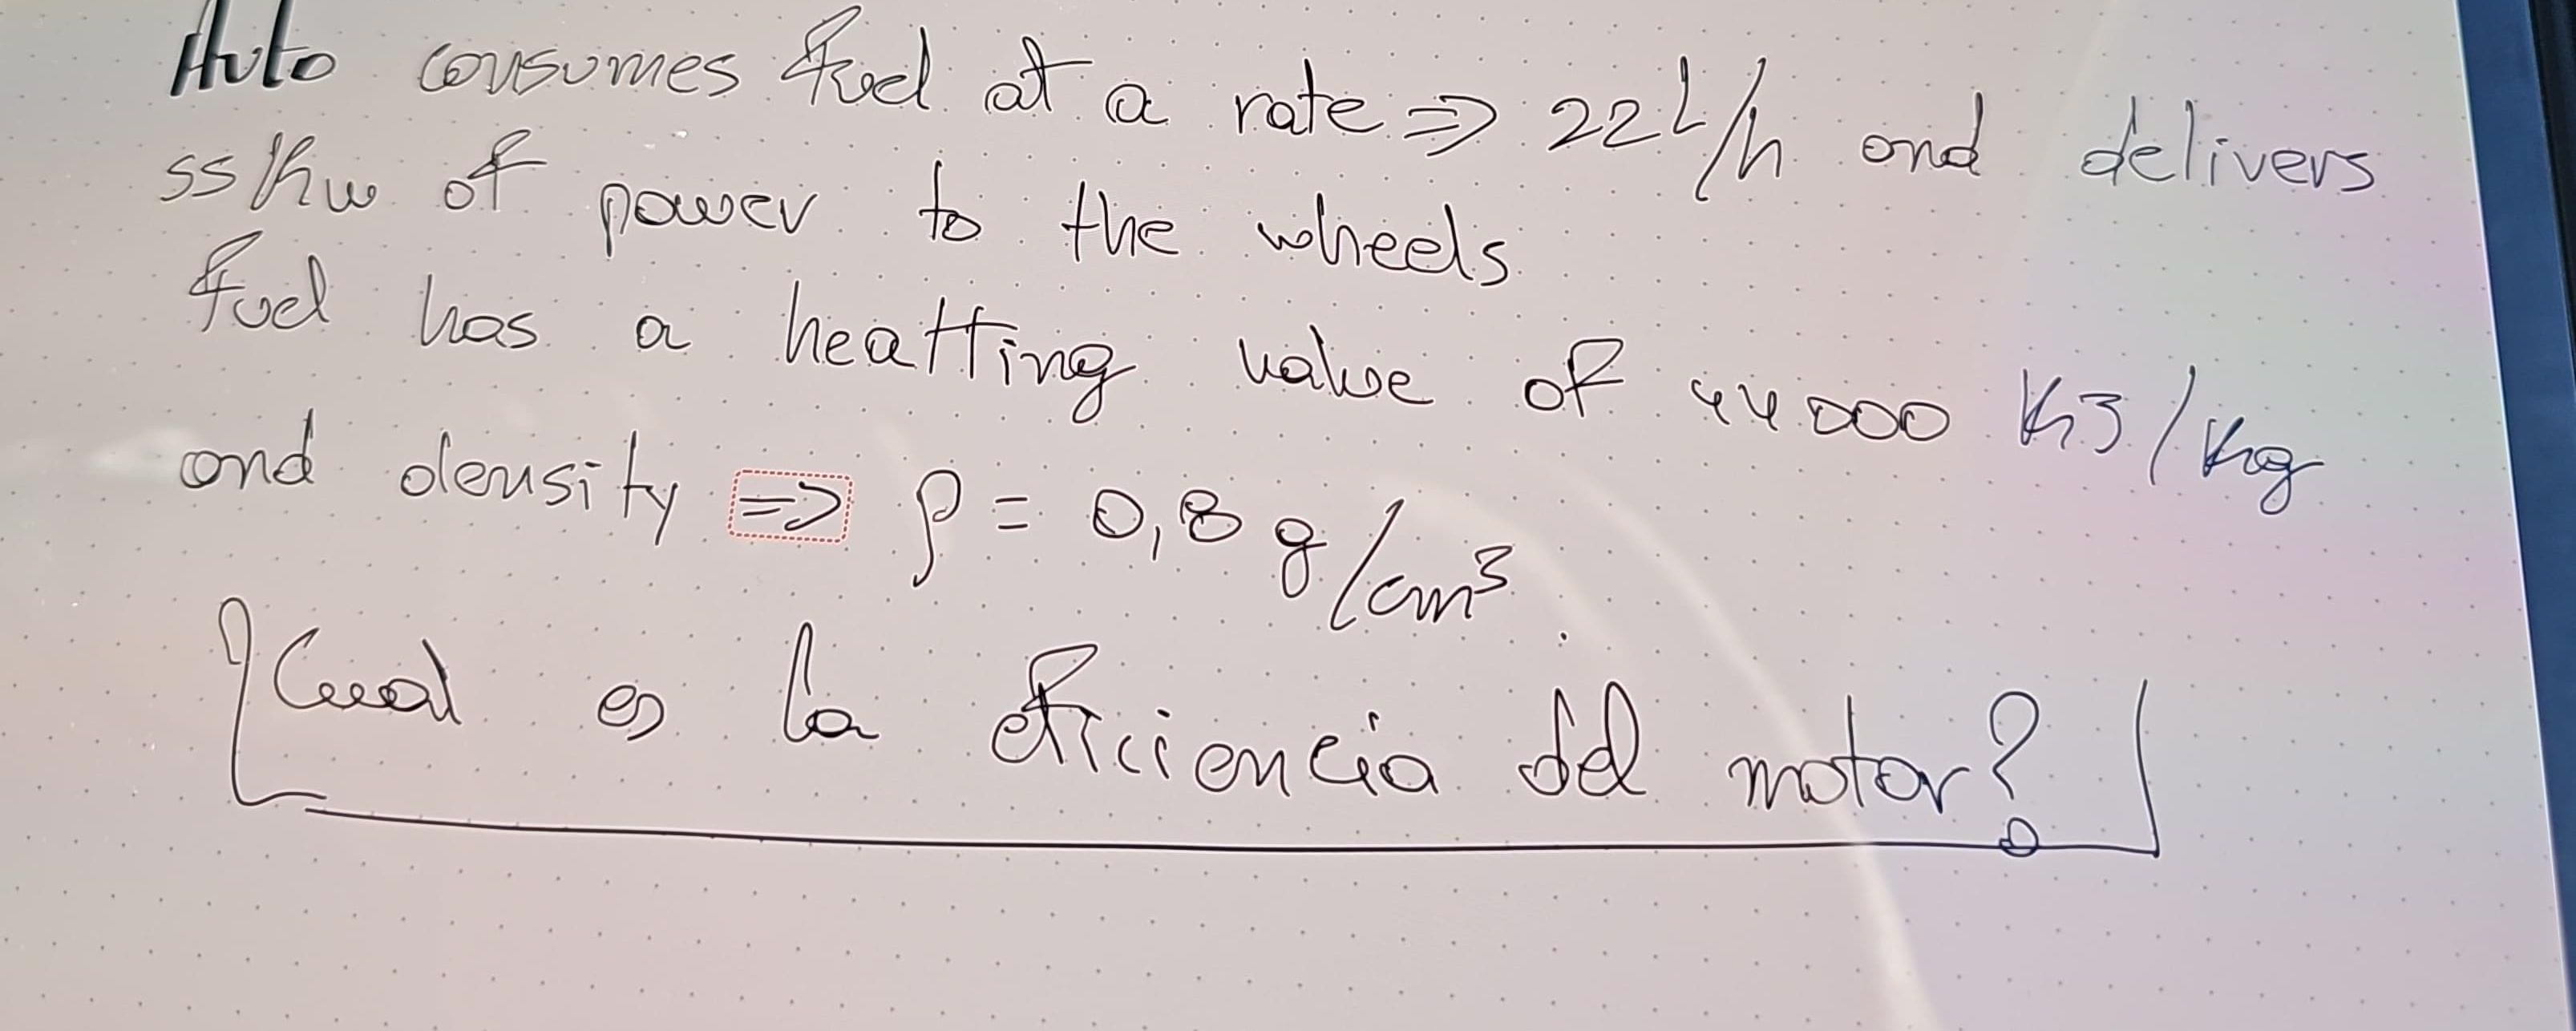 Auto consumes fuel at a rate => 22 L/h and delivers
55 Kw of power to the wheels
fuel has a heatting value of 44000 KJ/Kg
and density => ρ = 0,8 g/cm³.
¿Cual es la eficiencia del motor?